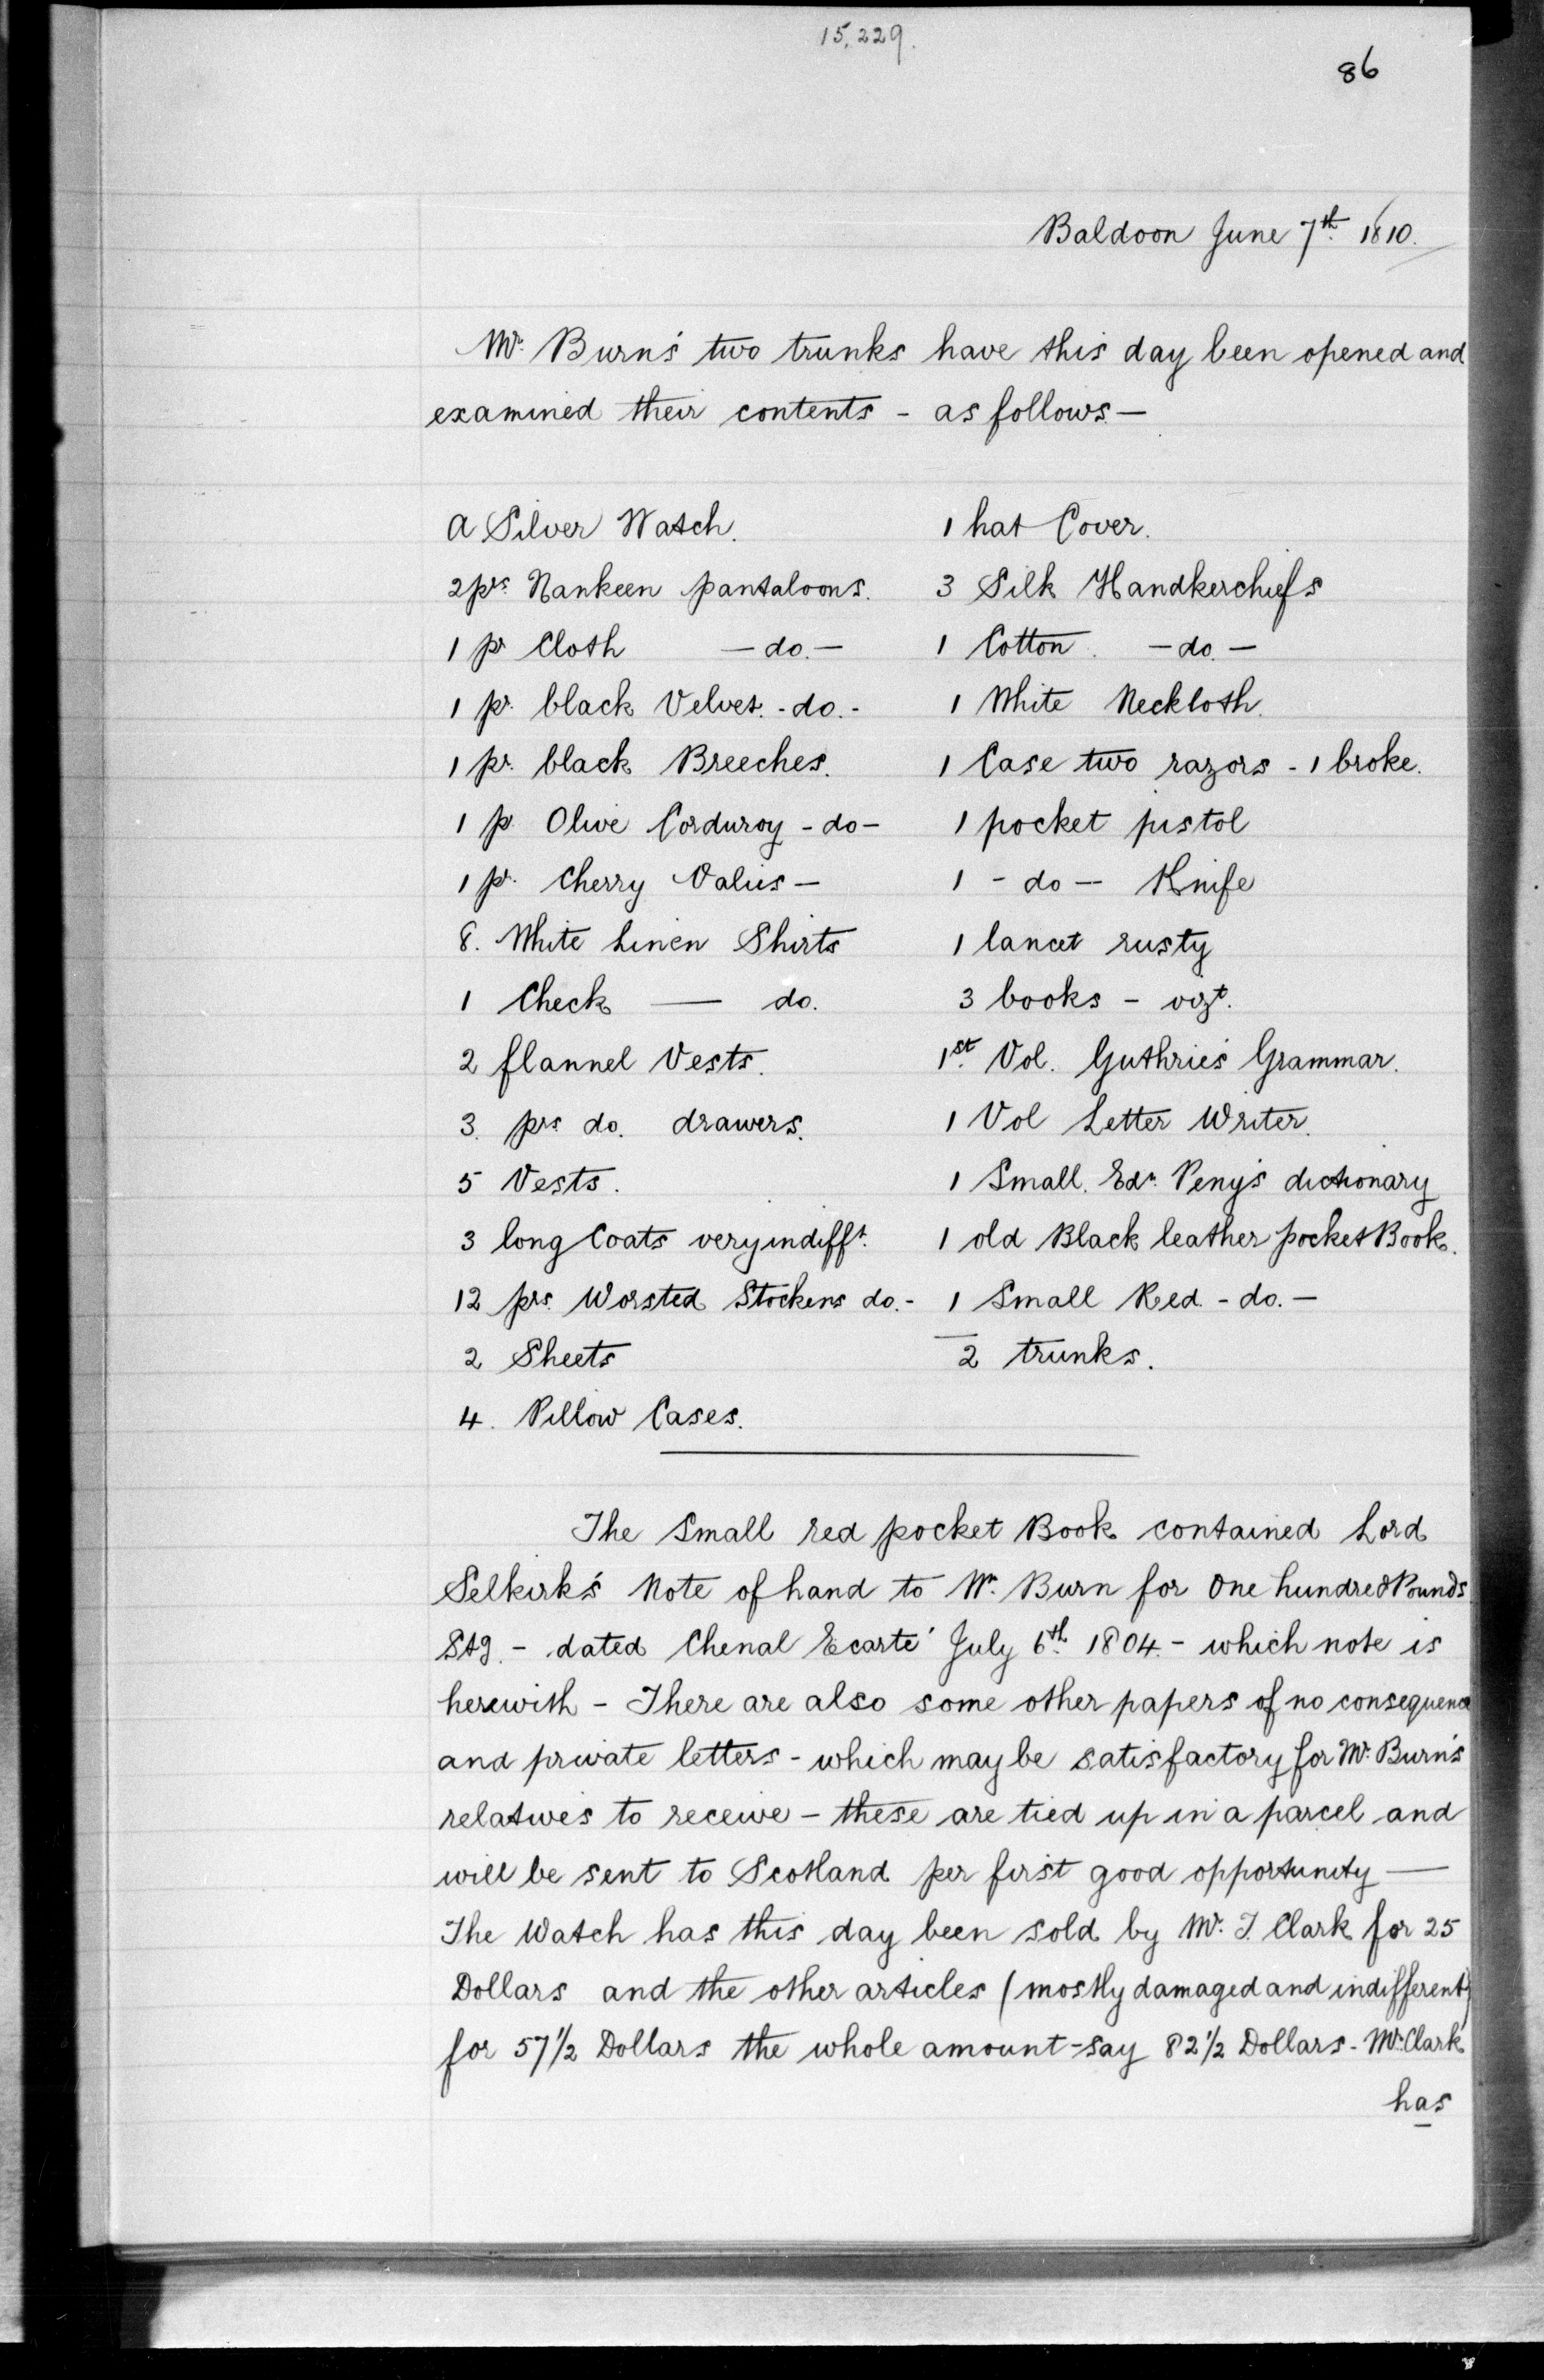 15,229.
86
Baldoon June 7th 1810.
Mr. Burn's two trunks have this day been opened and
examined their contents - as follows. —
A Silver Watch.
2 prs. Nankeen pantaloons.
1 pr Cloth — do. —
1 pr. black Velvet. - do. -
1 pr. black Breeches.
1 pr Olive Corduroy - do -
1 pr. Cherry Valies —
8. White Linen Shirts
1 Check — do.
2 flannel Vests.
3. prs. do. drawers.
5 Vests.
3 long Coats very indifft.
12 prs. Worsted Stockens do. -
2 Sheets
4. Pillow Cases.
1 hat Cover.
3 Silk Handkerchiefs
1 Cotton. — do. —
1 White Neckloth.
1 Case two razors - 1 broke.
1 pocket pistol
1 - do — Knife
1 lancet rusty
3 books - vizt.
1st. Vol. Guthrie's Grammar.
1 Vol Letter Writer.
1 Small. Edn. Peny's dictionary
1 old Black leather pocket Book.
1 Small Red - do. —
2 trunks.
The Small red pocket Book contained Lord
Selkirk's Note of hand to Wm. Burn for One hundred Pounds
Stg. - dated Chenal Ecarté July 6th. 1804. - which note is
herewith - There are also some other papers of no consequence
and private letters - which may be satisfactory for Mr. Burn's
relatives to receive - these are tied up in a parcel and
will be sent to Scotland per first good opportunity —
The Watch has this day been sold by Mr. J. Clark for 25
Dollars and the other articles (mostly damaged and indifferent)
for 57 1/2 Dollars the whole amount - say 82 1/2 Dollars - Mr. Clark
has